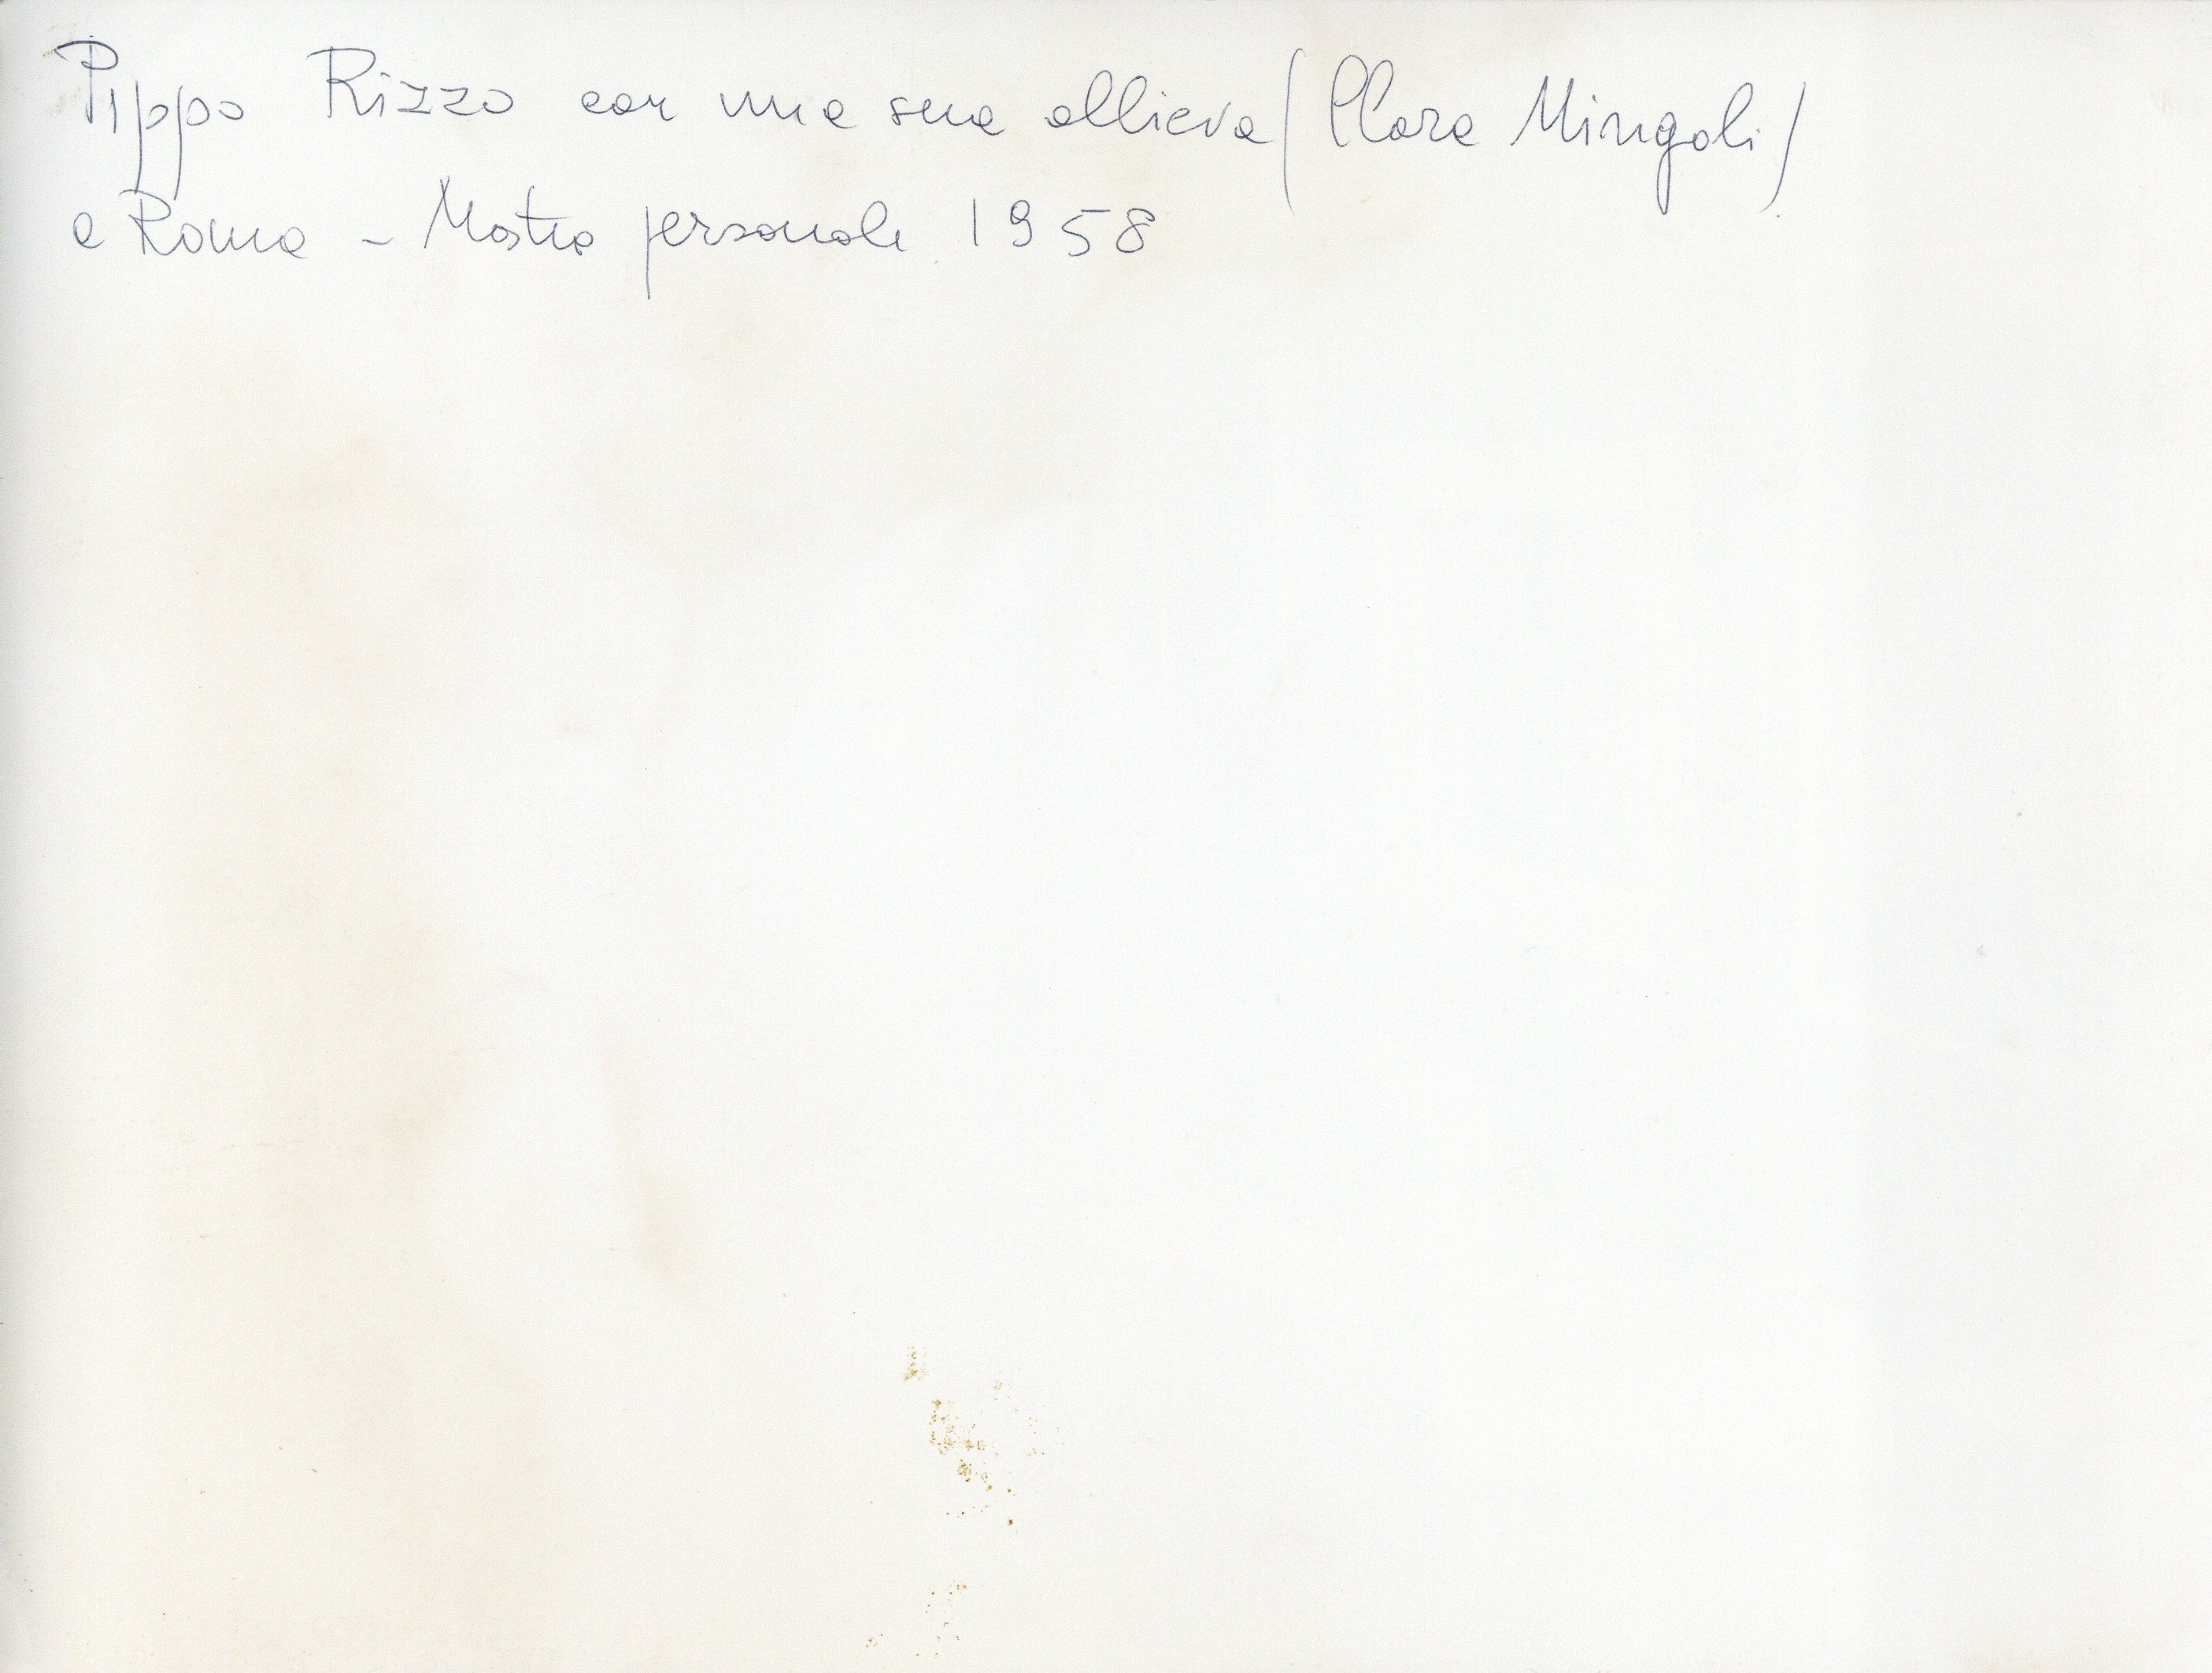 Pippo Rizzo con una sua allieva (Clara Mingoli)
a Roma - Mostra personale 1958